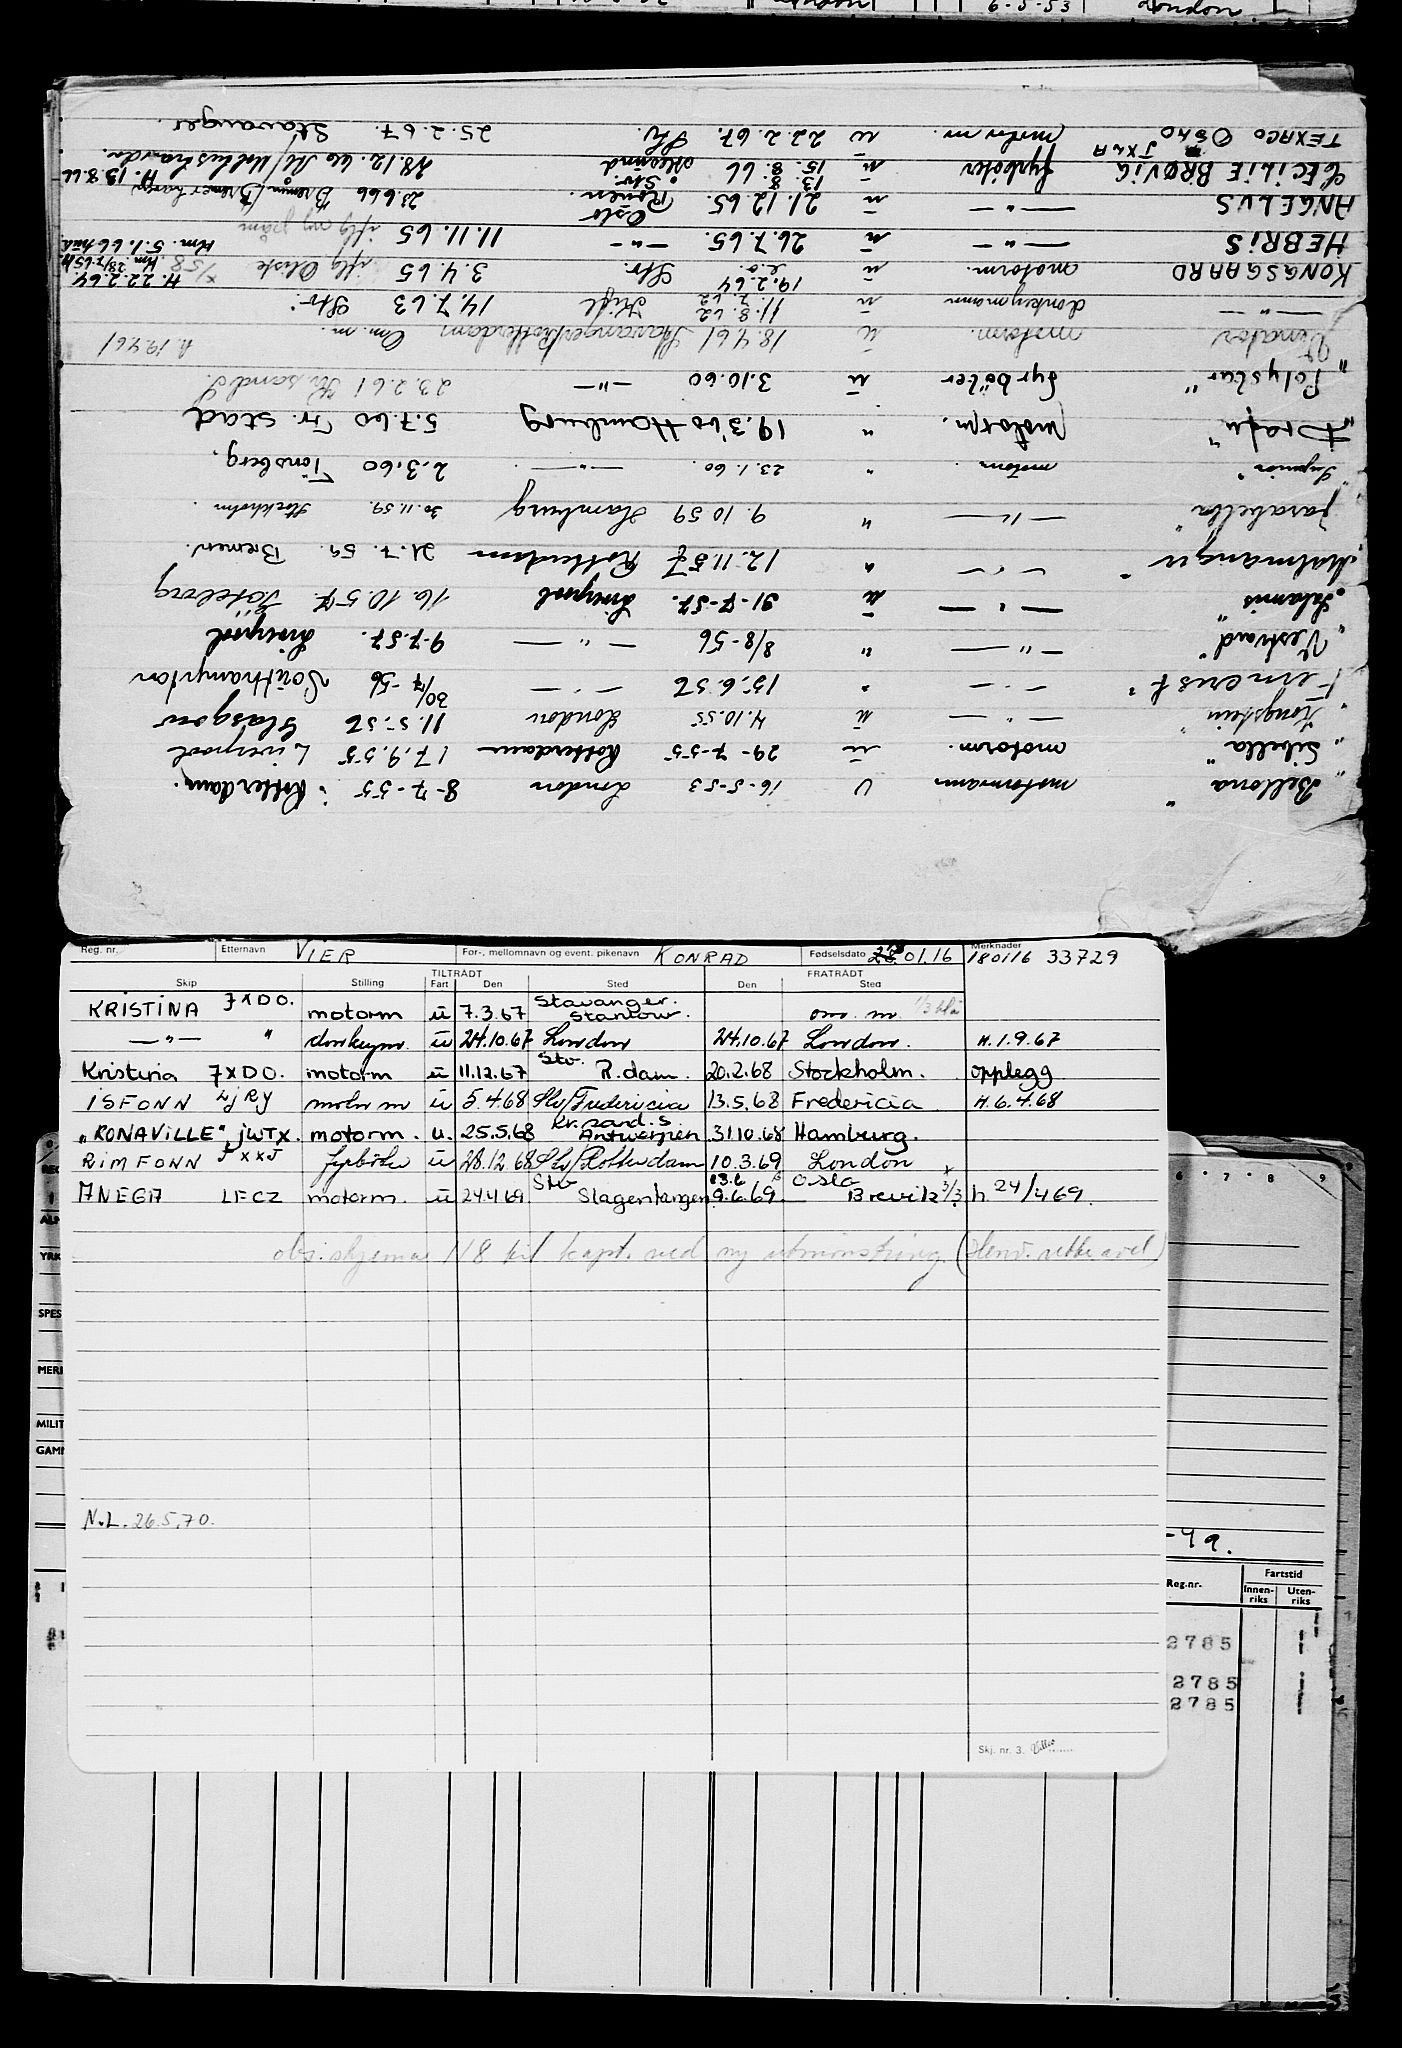 " Bellona " motormann U 16-5-53 London 8-7-55 Rotterdam.
" Sibella " motorm. u 29-7-55 Rotterdam 17.9.55 Liverpool
" Kongstein " — " — u 4.10.55 London 11.5.56 Glasgow
" Ferncrest " — " — " 15.6.56 — " — 30/7-56 Southampton
" Vestvard " — " — " 8/8-56 — " — 9-7.57. Liverpool
" Salamis " — " — u 31-7-57. Liverpool 16.10.57. Göteborg
" Malmanger " — " — " 12.11.57 Rotterdam 21.7.59. Bremen.
" Jarabella " — " — " 9.10 59 Hamburg 30.11.59. Stockholm.
" Ingeniør " motorm. " 23.1.60 — " — 2.3.60 Tönsberg.
motorm. " 19.3.60 Hamburg 5.7.60 Fr. stad
" Polystar " fyrbøter u 3.10.60 — " — 23.2.61 Kr.sand S.
motorm. u 18.4.61 Stavanger/Rotterdam Om. m. h. 19.4.61
— " — donkeymann u 11.8.62 14.7.63 Stv.
KONGSGAARD motorm. u 19.2.64 Stv. 3.4.65 iflg Oliste H. 22.2.64
HEBRIS — " — u 26.7.65. — " — 11.11.65 iflg
ANGELUS — " — u 21.12.65. Oslo Rouen. 23.6.66 Bremen/Bremerhaven Hm. 5.1.66
CECILIE BRØVIG JXLA fyrbøter u 13.8 15.8.66 Stv. Ålesund 28.12.66 H. 13.8.66
TEXACO OSLO motorm. u 22.2.67. Stv. 25.2.67. Stavanger.
Reg. nr. Etternavn VIER For-, mellomnavn og event. pikenavn KONRAD Fødselsdato 01.16 Merknader 180116 33729
TILTRÅDT FRATRÅDT
Skip Stilling Fart Den Sted Den Sted
KRISTINA JXDO. motorm u 7.3.67 Stavanger. Stanlow. om. m
— " — " donkeym. u 24.10.67 London 24.10.67 London. H. 1.9.67
Kristina JXDO. motorm u 11.12.67 Stv. R.dam. 20.2.68 Stockholm. opplegg
ISFONN motor m u 5.4.68 Stv/Fredericia 13.5.68 Fredericia H. 6.4.68
"RONAVILLE" JWTX. motorm. u. 25.5.68 Kr. sand. S Antwerpen 31.10.68 Hamburg.
RIMFONN JXXJ fyrbøter u 28.12.68 Stv/Rotterdam 10.3.69 London
ANEGA LECZ motorm. u 24.4.69. Stv Slagentangen 13.6 9.6.69. Oslo Brevik 3/3 h 24/4 69.
obs. skjema 118 til kapt. ved ny utmönstring
N.L. 26.5.70.
Skj. nr. 3.
6 7 8 9
YRK
SPES
MERK
MILIT
-49.
Reg.nr. Fartstid
Innen-riks Uten-riks
2785
2785
2785